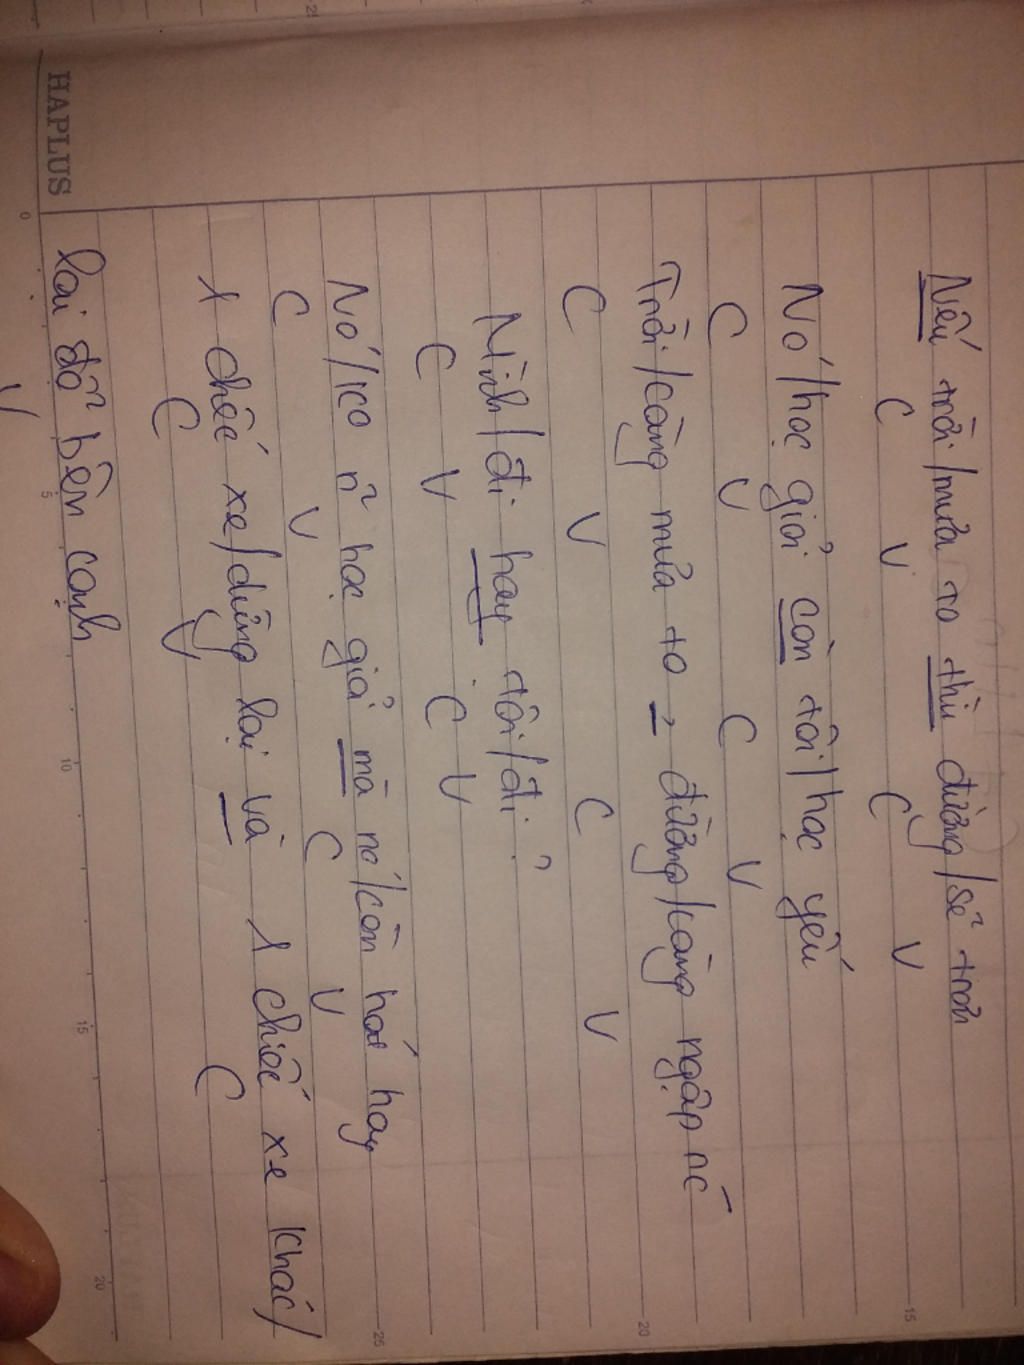 HAPLUS
Nếu trời/mưa to thì đường/sẽ trơn
C V C V
Nó/học giỏi còn tôi/học yếu
C V C V
Trời/càng mưa to, đường/càng ngập nc
C V C V
Mình/đi hay tôi/đi?
C V C V
Nó/ko n~ học giỏi mà nó/còn hát hay
C V C V
1 chiếc xe/dừng lại và 1 chiếc xe khác/
C V C
lại đỗ bên cạnh
V
0
5
10
15
20
25
20
15